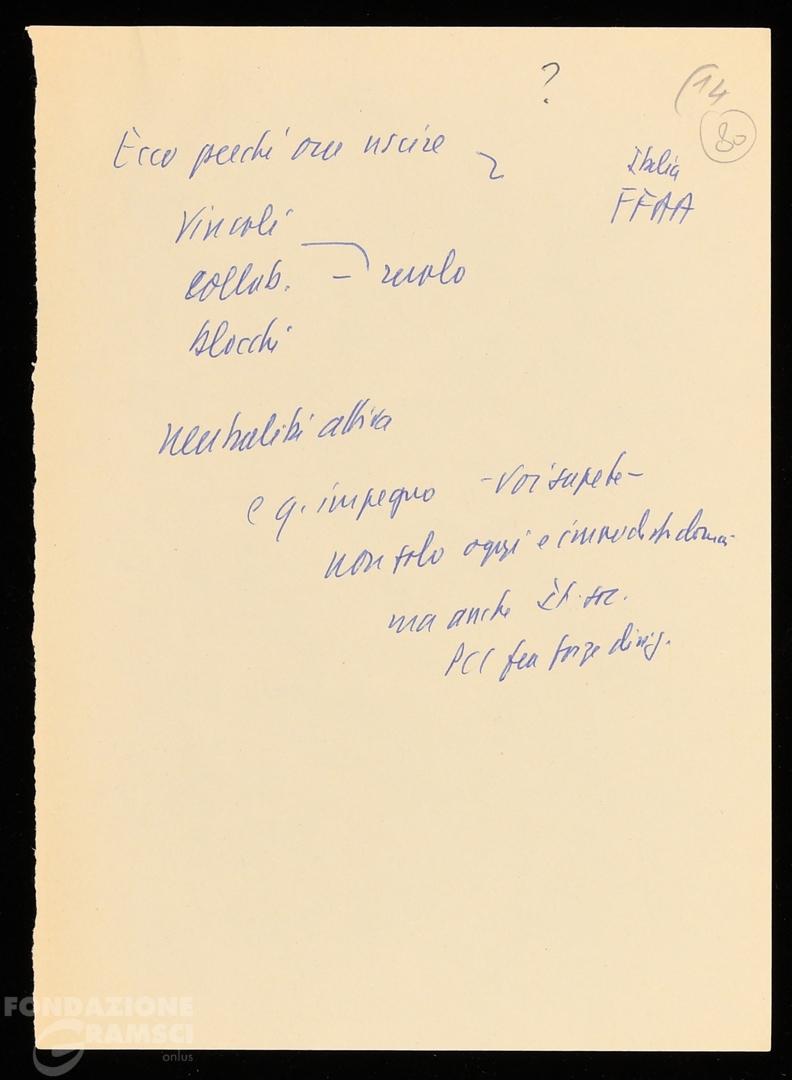 ?
(14
80
Ecco perché ora uscire
Italia
FFAA
vincoli
collab. – ruolo
blocchi
neutralità attiva
e q. impegno – voi sapete –
non solo oggi e immediato domani
ma anche It. soc.
PCI fra forze dirig.
FONDAZIONE
GRAMSCI
onlus